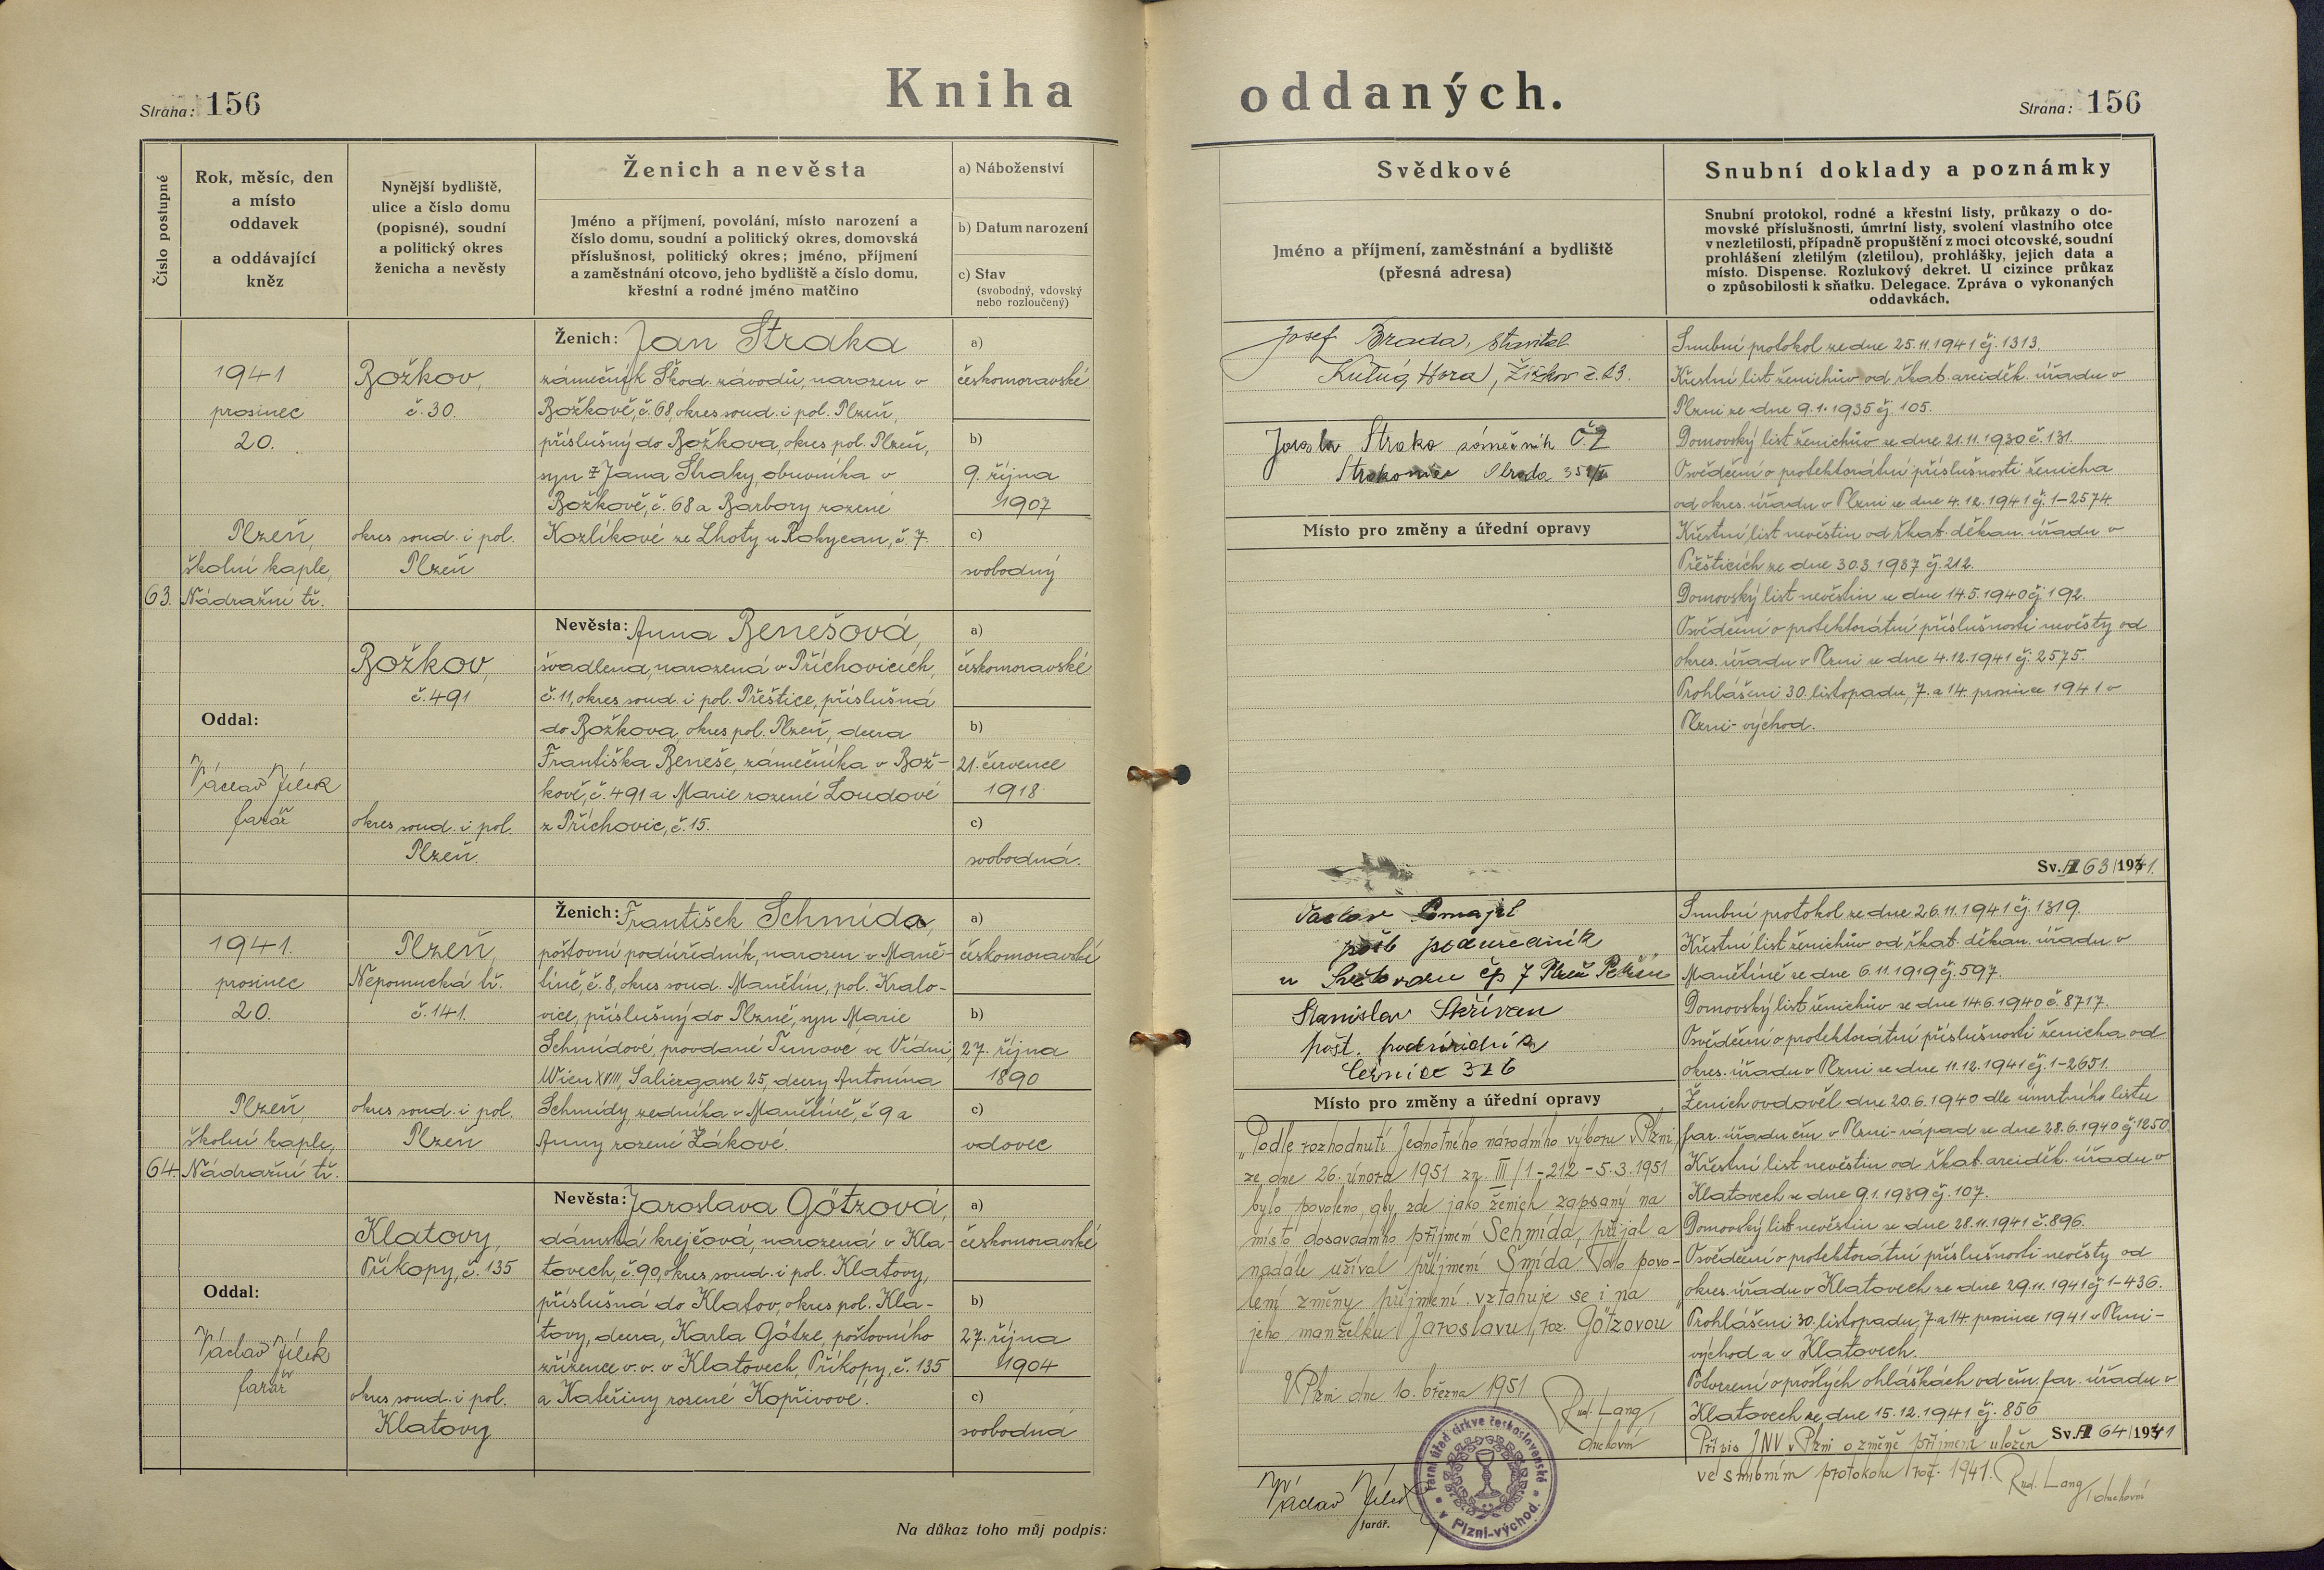 Strana: 156
Kniha oddaných.
Strana: 156
Číslo postupné
Rok, měsíc, den
a místo
oddavek
a oddávající
kněz
Nynější bydliště,
ulice a číslo domu
(popisné), soudní
a politický okres
ženicha a nevěsty
Ženich a nevěsta
Jméno a příjmení, povolání, místo narození a
číslo domu, soudní a politický okres, domovská
příslušnost, politický okres; jméno, příjmení
a zaměstnání otcovo, jeho bydliště a číslo domu,
křestní a rodné jméno matčino
a) Náboženství
b) Datum narození
c) Stav
(svobodný, vdovský
nebo rozloučený)
Svědkové
Jméno a příjmení, zaměstnání a bydliště
(přesná adresa)
Snubní doklady a poznámky
Snubní protokol, rodné a křestní listy, průkazy o do-
movské příslušnosti, úmrtní listy, svolení vlastního otce
v nezletilosti, případně propuštění z moci otcovské, soudní
prohlášení zletilým (zletilou), prohlášky, jejich data a
místo. Dispense. Rozlukový dekret. U cizince průkaz
o způsobilosti k sňatku. Delegace. Zpráva o vykonaných
oddavkách.
63.
1941
prosinec
20.
Plzeň,
školní kaple,
Nádražní tř.
Oddal:
Václav Jílek
farář
Božkov,
č. 30.
okres soud. i pol.
Plzeň
Božkov,
č. 491
okres soud. i pol.
Plzeň.
Ženich: Jan Straka
zámečník Škod. závodů, narozen v
Božkově, č. 68, okres soud. i pol. Plzeň,
příslušný do Božkova, okres pol. Plzeň,
syn Jana Straky, obuvníka v
Božkově, č. 68 a Barbory rozené
Kozlíkové ze Lhoty u Rokycan, č. 7.
Nevěsta: Anna Benešová,
švadlena, narozená v Příchovicích,
č. 11, okres soud. i pol. Přeštice, příslušná
do Božkova, okres pol. Plzeň, dcera
Františka Beneše, zámečníka v Bož-
kově, č. 491 a Marie rozené Loudové
z Příchovic, č. 15.
a)
českomoravské
b)
9. října
1907
c)
svobodný
a)
českomoravské
b)
21. července
1918
c)
svobodná.
Josef Brada, stavitel
Kutná Hora, Žižkov č. 23.
Straka zámečník Č.Z
Strakonice 352/II
Místo pro změny a úřední opravy
Snubní protokol ze dne 25.11.1941 čj. 1313.
Křestní list ženichův od řkat. arciděk. úřadu v
Plzni ze dne 9.1.1935 čj. 105.
Domovský list ženichův ze dne 21.11.1930 č. 131.
Osvědčení o protektorátní příslušnosti ženicha
od okres. úřadu v Plzni ze dne 4.12.1941 čj. 1-2574.
Křestní list nevěstin od řkat. děkan. úřadu v
Přešticích ze dne 30.3.1937 čj. 212.
Domovský list nevěstin ze dne 14.5.1940 čj. 192.
Osvědčení o protektorátní příslušnosti nevěsty od
okres. úřadu v Plzni ze dne 4.12.1941 čj. 2575.
Prohlášeni 30. listopadu, 7. a 14. prosince 1941 v
Plzni-východ.
Sv. A 63/1941.
64.
1941.
prosinec
20.
Plzeň,
školní kaple,
Nádražní tř.
Oddal:
Václav Jílek
farář
Plzeň,
Nepomucká tř.
č. 141.
okres soud. i pol.
Plzeň
Klatovy,
Příkopy, č. 135
okres soud. i pol.
Klatovy
Ženich: František Schmida,
poštovní podúředník, narozen v Maně-
tíně, č. 8, okres soud. Manětín, pol. Kralo-
vice, příslušný do Plzně, syn Marie
Schmidové, provdané ve Vídni,
Wien XVIII, 25, dcery Antonína
Schmidy, zedníka v Manětíně, č. 9 a
Anny rozené Žákové.
Nevěsta: Jaroslava Götzová,
dámská krejčová, narozená v Kla-
tovech, č. 90, okres soud. i pol. Klatovy,
příslušná do Klatov, okres pol. Kla-
tovy, dcera, Karla Götze, poštovního
zřízence v. v. v Klatovech, Příkopy, č. 135
a Kateřiny rozené Kopřivové.
a)
českomoravské
b)
27. října
1890
c)
vdovec
a)
českomoravské
b)
27. října
1904
c)
svobodná
Václav
podúředník
čp 7 Plzeň
Stanislav Skřivan
pošt. podúředník
Černice 326
Místo pro změny a úřední opravy
„Podle rozhodnutí Jednotného národního výboru v Plzni
ze dne 26. února 1951 zn. III/1-212-5.3.1951
bylo povoleno, aby zde jako ženich zapsaný na
místo dosavadního příjmení Schmida, přijal a
nadále užíval příjmení Šmída. Toto povo-
lení změny příjmení vztahuje se i na
jeho manželku Jaroslavu, roz. Götzovou"
V Plzni dne 10. března 1951
Rud. Lang,
duchovní
Snubní protokol ze dne 26.11.1941 čj. 1319.
Křestní list ženichův od řkat. děkan. úřadu v
Manětíně ze dne 6.11.1919 čj. 597.
Domovský list ženichův ze dne 14.6.1940 č. 8717.
Osvědčení o protektorátní příslušnosti ženicha od
okres. úřadu v Plzni ze dne 11.12.1941 čj. 1-2651.
Ženich ovdověl dne 20.6.1940 dle úmrtního listu
far. úřadu čm v Plzni-západ ze dne 28.6.1940 čj 1250.
Křestní list nevěstin od řkat. arciděk. úřadu v
Klatovech ze dne 9.1.1939 čj. 107.
Domovský list nevěstin ze dne 28.11.1941 č. 896.
Osvědčení o protektorátní příslušnosti nevěsty od
okres. úřadu v Klatovech ze dne 29.11.1941 čj 1-436.
Prohlášeni 30. listopadu, 7. a 14. prosince 1941 v Plzni-
východ a v Klatovech.
Potvrzení o prošlých ohláškách od čm. far. úřadu v
Klatovech ze dne 15.12.1941 čj. 856
Přípis JNV v Plzni o změně příjmení uložen
Sv. A 64/1941
ve snubním protokolu roč. 1941. Rud. Lang, duchovní
Na důkaz toho můj podpis:
Václav Jílek
farář.
Farní úřad církve československé
v Plzni-východ.